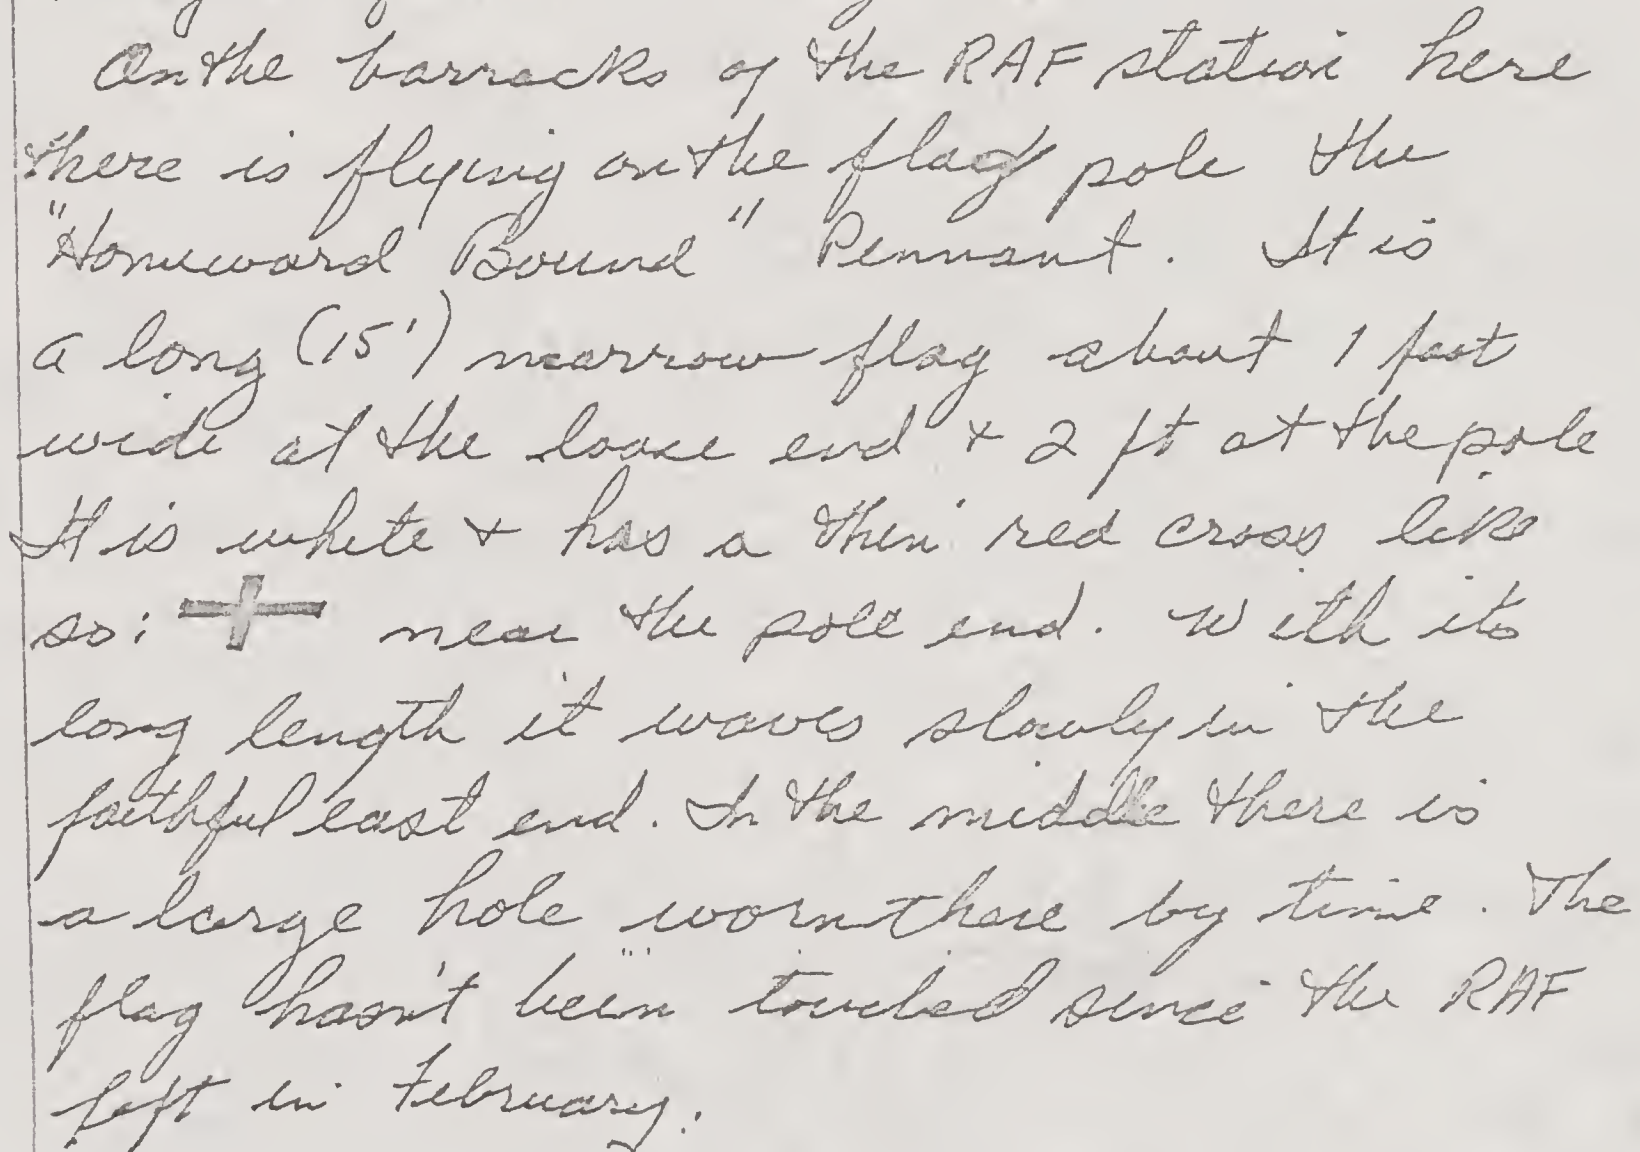 On the barracks of the RAF station here
there is flying on the flag pole the
"Homeward Bound" Pennant. It is
a long (15') narrow flag about 1 foot
wide at the loose end + 2 ft at the pole
It is white + has a thin red cross like
so: + near the pole end. With its
long length it waves slowly in the
faithful east end. In the middle there is
a large hole worn there by time. The
flag hasn't been touched since the RAF
left in February.